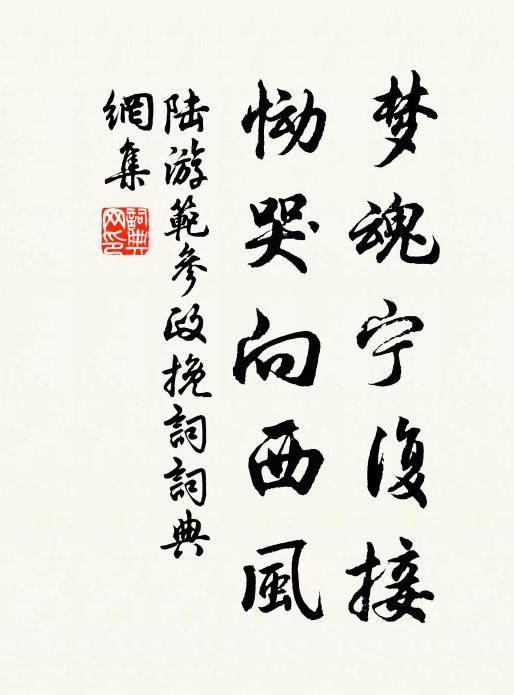 梦魂宁復接
恸哭向西風
陆游範參政挽詞詞典
網集
詞典網印